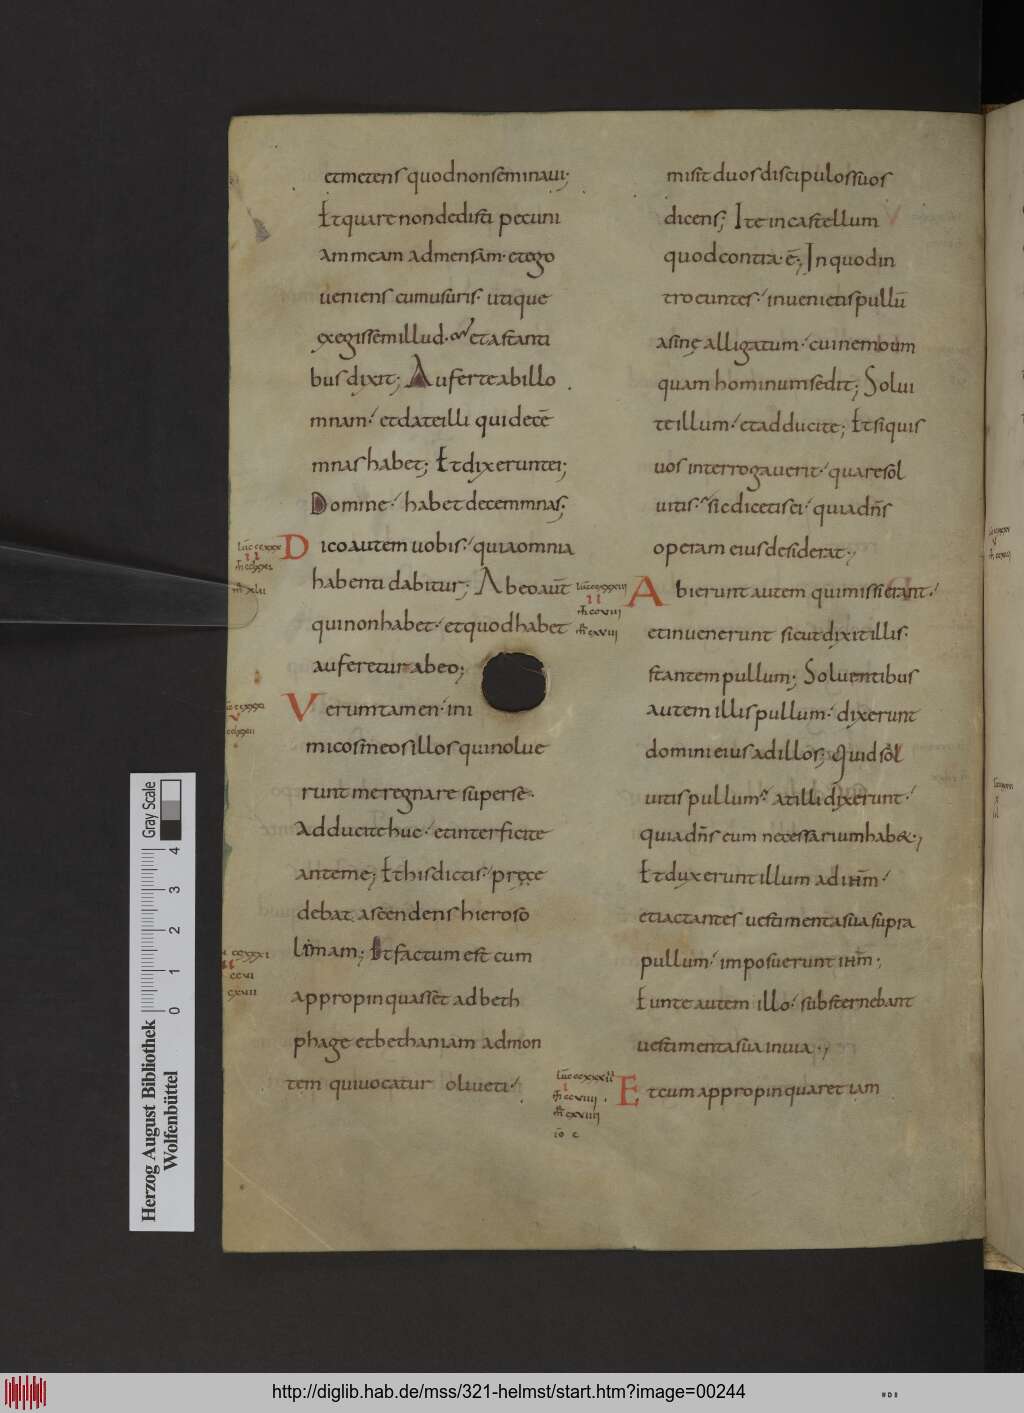 et metens quod non seminavi;
Et quare non dedisti pecuni
am meam ad mensam· et ego
veniens cum usuris· utique
exegissem illud· et astanti
bus dixit; Auferte ab illo
mnam· et date illi qui decē
mnas habet; Et dixerunt ei;
Domine· habet decem mnas;
Dico autem vobis· quia omnia
habenti dabitur; Ab eo aūt
qui non habet· et quod habet
auferetur ab eo;
Verumtamen· ini
micos meos illos qui nolue
runt me regnare super se·
Adducite huc· et interficite
ante me; Et his dictis· pręce
debat ascendens hieroso
limam; Et factum est cum
appropinquasset ad beth
phage et bethaniam ad mon
tem qui vocatur oliveti·
misit duos discipulos suos
dicens; Ite in castellum
quod contra ē; In quod in
troeuntes· invenietis pullū
asinę alligatum· cui nemo um
quam hominum sedit; Solvi
te illum· et adducite; Et si quis
vos interrogaverit· quare sol
vitis· sic dicetis ei· quia dn̄s
operam eius desiderat·,
Abierunt autem qui missi erant·
et invenerunt sicut dixit illis·
stantem pullum; Solventibus
autem illis pullum· dixerunt
domini eius ad illos; Quid sol
vitis pullum· at illi dixerunt·
quia dn̄s eum necessarium hab&·,
Et duxerunt illum ad ihm̄·
et iactantes vestimenta sua supra
pullum· imposuerunt ihm̄·,
Eunte autem illo· substernebant
vestimenta sua in via·,
Et cum appropinquaret iam
Herzog August Bibliothek
Wolfenbüttel
0 1 2 3 4
Gray Scale
http://diglib.hab.de/mss/321-helmst/start.htm?image=00244